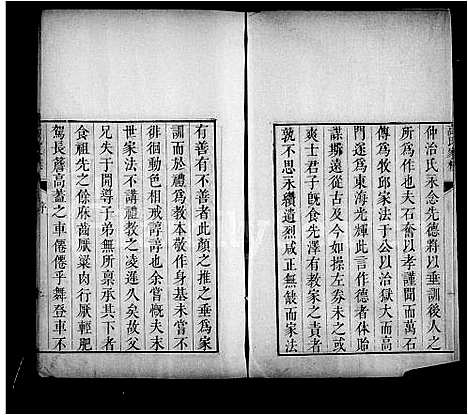 仲治氏永念先德將以垂訓後人之
所爲作也夫石奮以孝謹聞而萬石
傳爲牧邱家法于公以治獄大而高
門遂爲東海光輝此言作德者体貽
謀塙遠從古及今如操左券未之或
爽士君子既食先澤有敎家之責者
孰不思永纘遺烈咸正無缺而家法
有善有不善者此顏之推之垂爲家
訓而於禮爲敎本敬作身基未嘗不
徘徊動色相戒諄諄也余嘗慨夫末
世家法不講禮敎之凌遲久矣故父
兄失于開導子弟無所稟承其下者
食祖先之餘庥齒厭粱肉行厭輕肥
駕長簷高蓋之車倦倦乎舞登車不